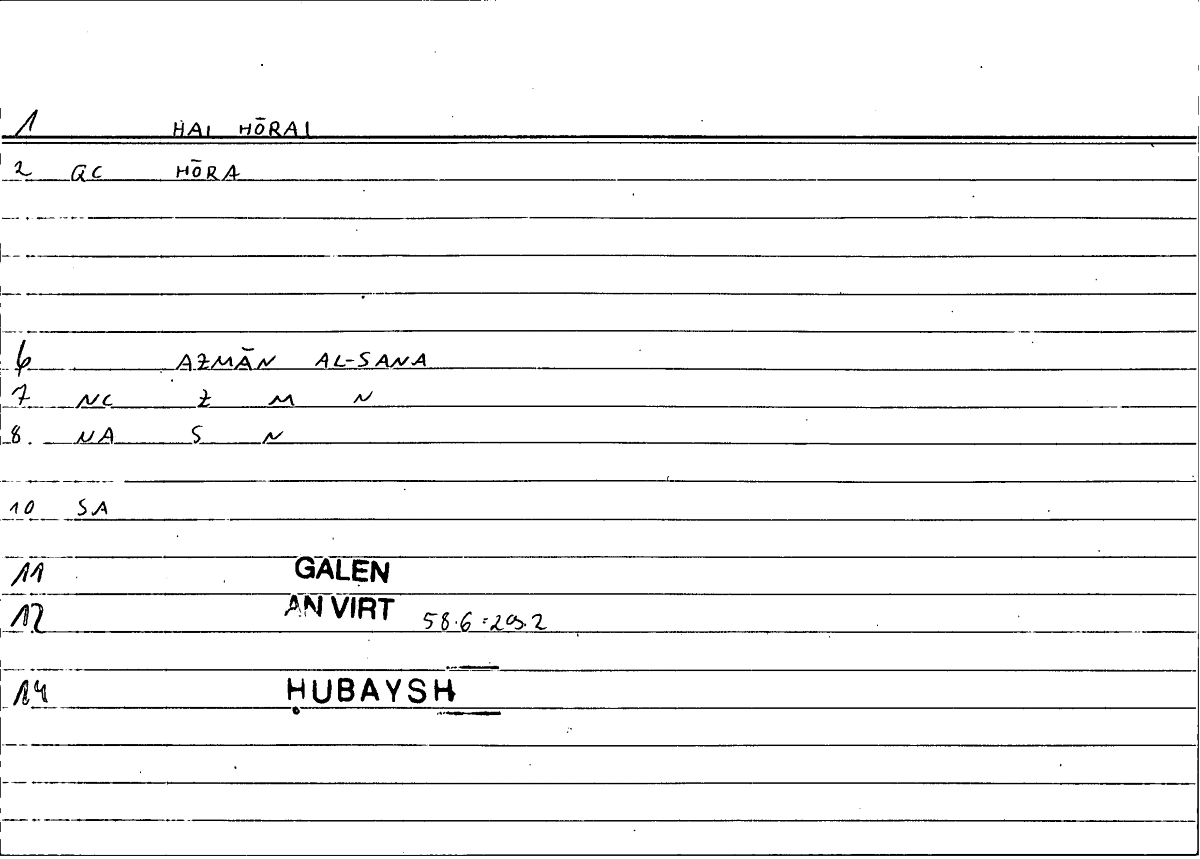 1 HAI HŌRAI
2 QC HŌRA
6 AZMĀN AL-SANA
7 NC Z M N
8. NA S N
10 SA
11 GALEN
12 AN VIRT 58.6 = 29.2
14 ḤUBAYSH